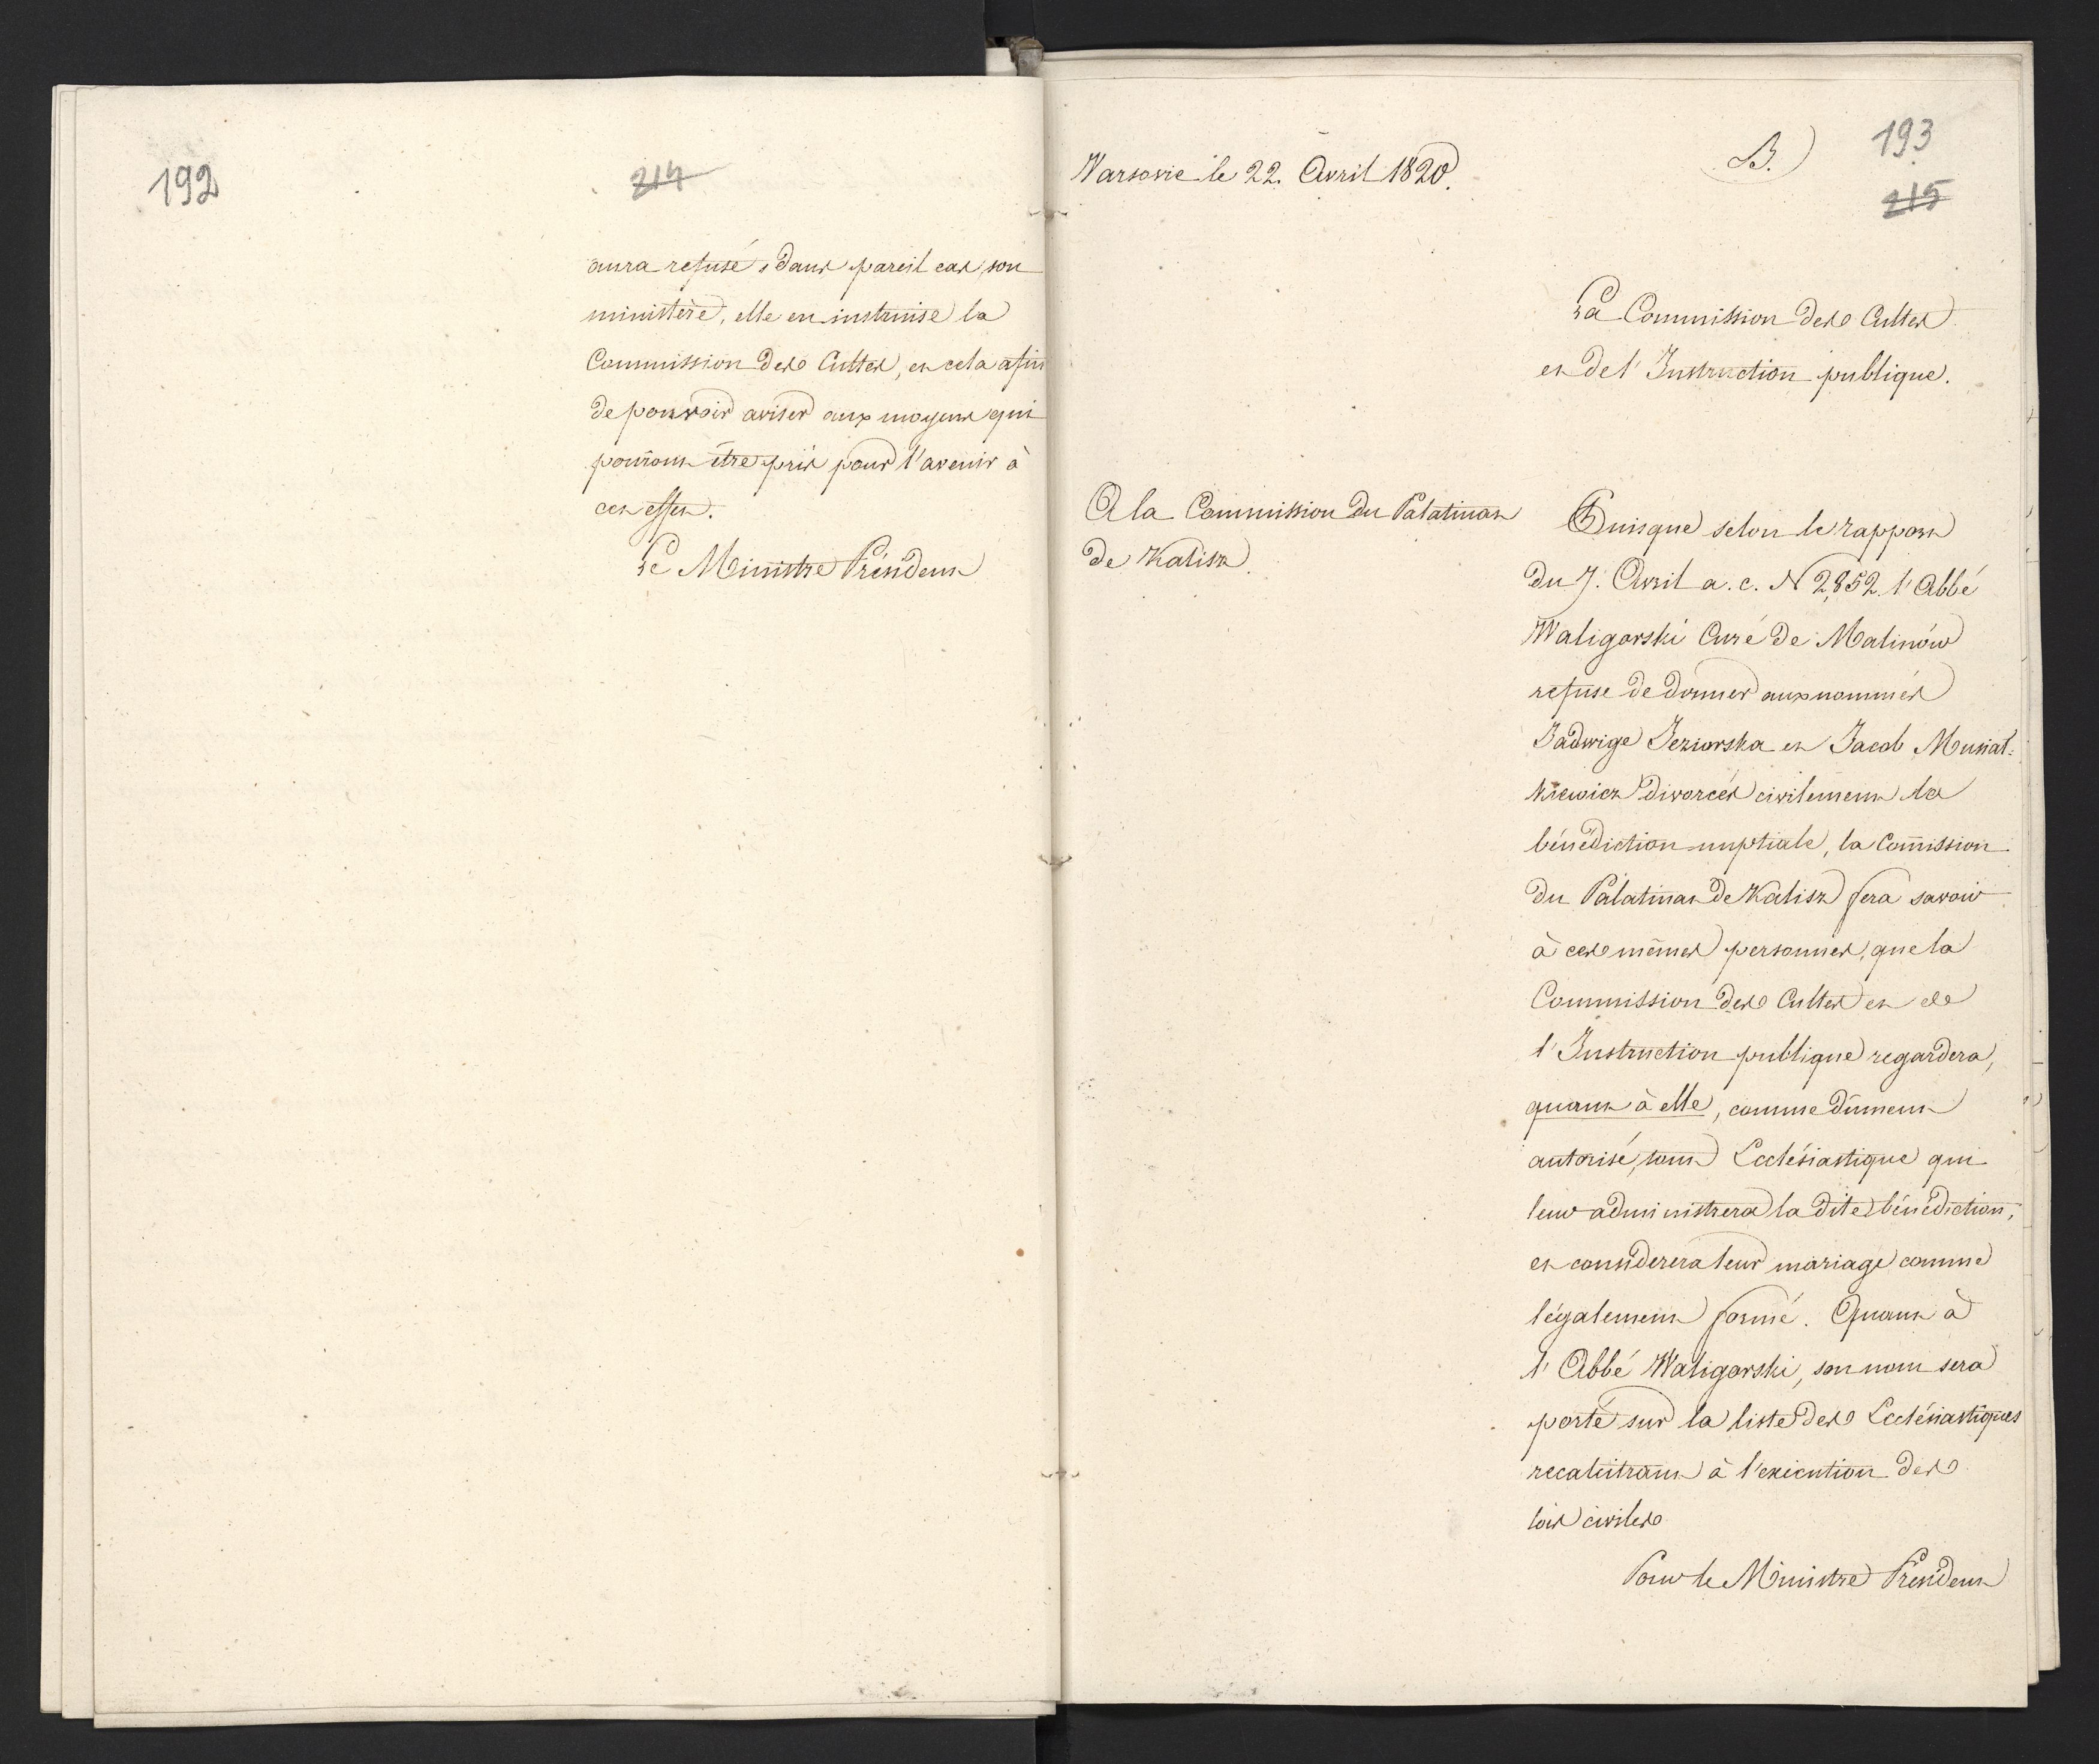 192
214
aura refusé, dans pareil cas, son
ministère, elle en instruise la
Commission des Cultes, et cela afin
de pouvoir aviser aux moyens qui
pourront être pris pour l'avenir à
cet effet.
Le Ministre Président
193
B.)
215
Warsovie le 22. Avril 1820.
La Commission des Cultes
et de l'Instruction publique.
A la Commission du Palatinat
de Kalisz.
Puisque selon le rapport
du 7. Avril a. c. N 2,852. l'Abbé
Waligorski Curé de Malinów
refuse de donner aux nommés
Jadwige Jeziorska et Jacob Musiał-
kiewicz divorcés civilement la
bénédiction nuptiale, la Com̄ission
du Palatinat de Kalisz fera savoir
à ces mêmes personnes, que la
Commission des Cultes et de
l'Instruction publique regardera,
quant à elle, comme dûment
autorisé, tout Ecclésiastique qui
leur administrera la dite bénédiction,
et considerera leur mariage comme
légalement formé. Quant à
l'Abbé Waligorski, son nom sera
porté sur la liste des Ecclésiastiques
recalcitrans à l'exécution des
lois civiles
Pour le Ministre Président